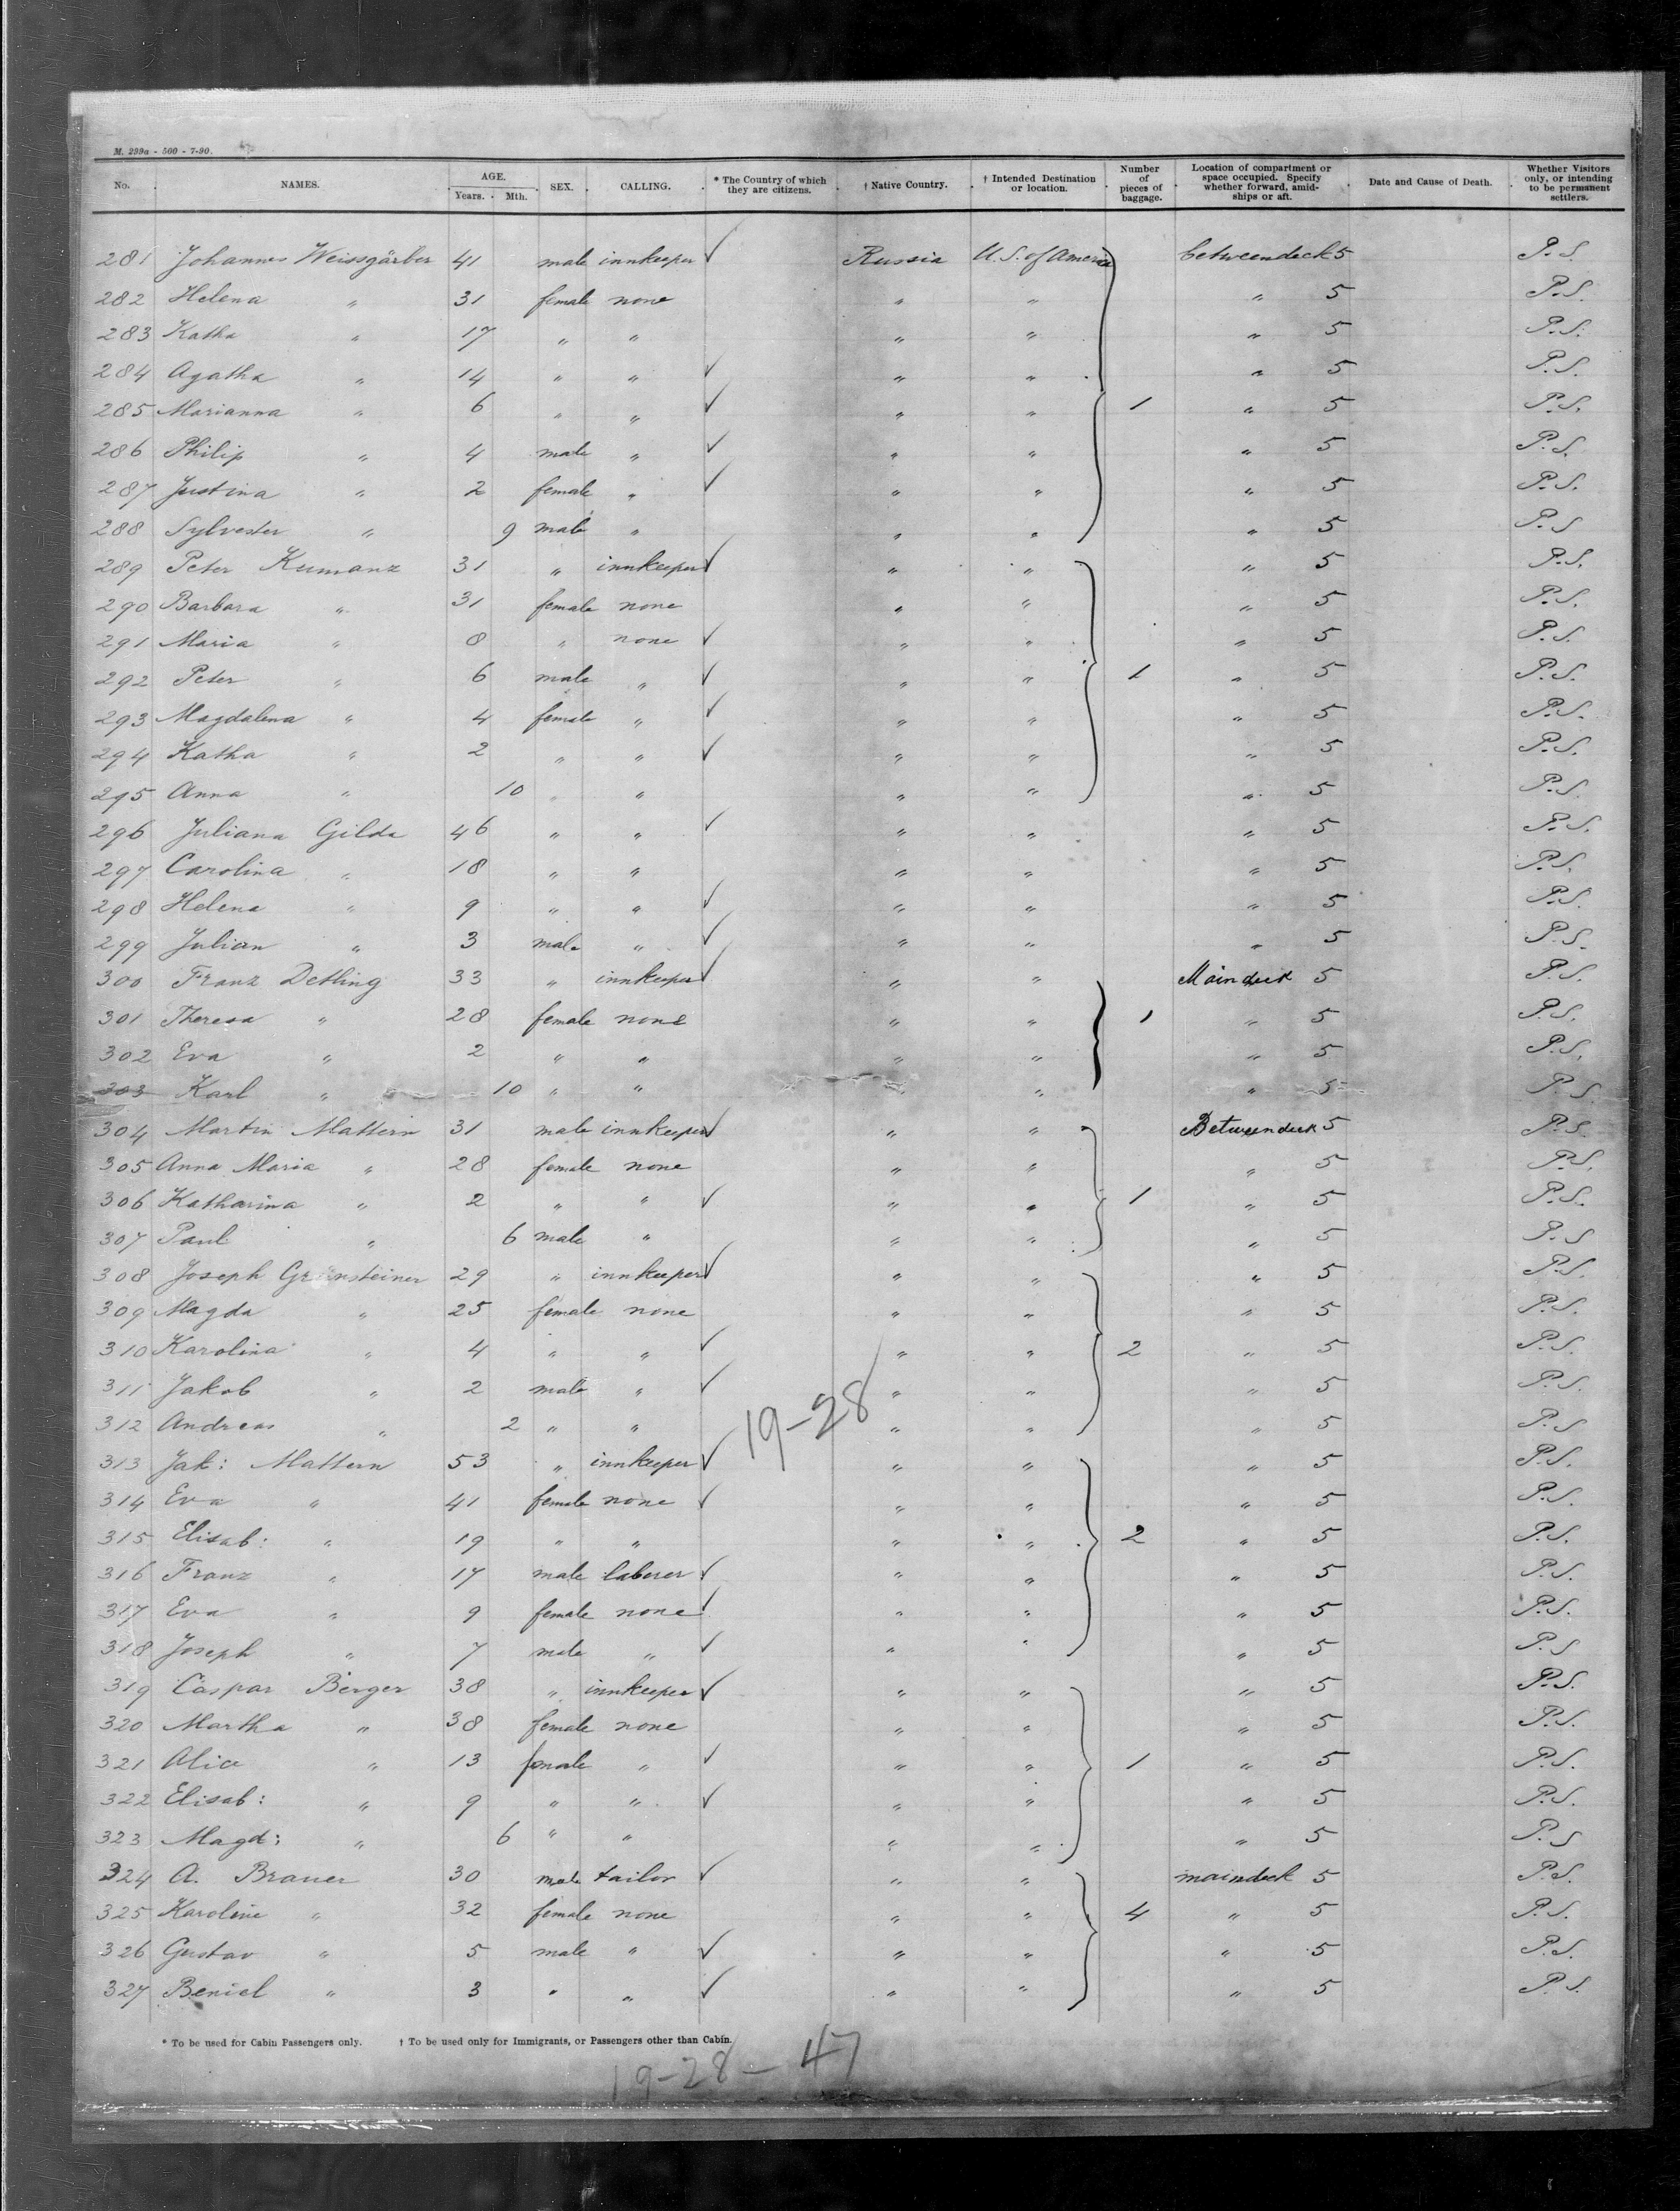 M. 299a - 500 - 7-90.
No. NAMES. AGE. Years. Mth. SEX. CALLING. * The Country of which they are citizens. † Native Country. † Intended Destination or location. Number of pieces of baggage. Location of compartment or space occupied. Specify whether forward, amidships or aft. Date and Cause of Death. Whether Visitors only, or intending to be permanent settlers.
281 Johannes Weissgärber 41 male innkeeper ✓ Russia U.S. of America betweendeck 5 P.S.
282 Helena " 31 female none " " " 5 P.S.
283 Katha " 17 " " " " " 5 P.S.
284 Agatha " 14 " " ✓ " " " 5 P.S.
285 Marianna " 6 " " ✓ " " 1 " 5 P.S.
286 Philip " 4 male " ✓ " " " 5 P.S.
287 Justina " 2 female " ✓ " " " 5 P.S.
288 Sylvester " 9 male " " " " 5 P.S
289 Peter Kumanz 31 " innkeeper ✓ " " " 5 P.S.
290 Barbara " 31 female none " " " 5 P.S.
291 Maria " 8 " none ✓ " " " 5 P.S.
292 Peter " 6 male " ✓ " " 1 " 5 P.S.
293 Magdalena " 4 female " ✓ " " " 5 P.S.
294 Katha " 2 " " ✓ " " " 5 P.S.
295 Anna " 10 " " " " " 5 P.S.
296 Juliana Gilde 46 " " ✓ " " " 5 P.S.
297 Carolina " 18 " " " " " 5 P.S.
298 Helena " 9 " " ✓ " " " 5 P.S.
299 Julian " 3 male " ✓ " " " 5 P.S.
300 Franz Detling 33 " innkeeper ✓ " " Maindeck 5 P.S.
301 Theresa " 28 female none " " 1 " 5 P.S.
302 Eva " 2 " " " " " 5 P.S.
303 Karl " 10 " " " " 5 P.S.
304 Martin Mattern 31 male innkeeper ✓ " " Betweendeck 5 P.S.
305 Anna Maria " 28 female none " " " 5 P.S.
306 Katharina " 2 " " ✓ " " 1 " 5 P.S.
307 Paul " 6 male " " " " 5 P.S
308 Joseph Grünsteiner 29 " innkeeper ✓ " " " 5 P.S.
309 Magda " 25 female none " " " 5 P.S.
310 Karolina " 4 " " ✓ " " 2 " 5 P.S.
311 Jakob " 2 male " ✓ " " " 5 P.S.
312 Andreas " 2 " " " " " 5 P.S
19-28
313 Jak: Mattern 53 " innkeeper ✓ " " " 5 P.S.
314 Eva " 41 female none ✓ " " " 5 P.S.
315 Elisab: " 19 " " " " 2 " 5 P.S.
316 Franz " 17 male laborer ✓ " " " 5 P.S.
317 Eva " 9 female none ✓ " " " 5 P.S.
318 Joseph " 7 male " ✓ " " " 5 P.S
319 Caspar Berger 38 " innkeeper ✓ " " " 5 P.S.
320 Martha " 38 female none " " " 5 P.S.
321 Alice " 13 female " ✓ " " 1 " 5 P.S.
322 Elisab: " 9 " " ✓ " " " 5 P.S.
323 Magd: " 6 " " " " " 5 P.S
324 A. Brauer 30 male tailor ✓ " " maindeck 5 P.S.
325 Karoline " 32 female none " " 4 " 5 P.S.
326 Gustav " 5 male " ✓ " " " 5 P.S.
327 Beniel " 3 " " ✓ " " " 5 P.S.
* To be used for Cabin Passengers only. † To be used only for Immigrants, or Passengers other than Cabin.
19-28-47